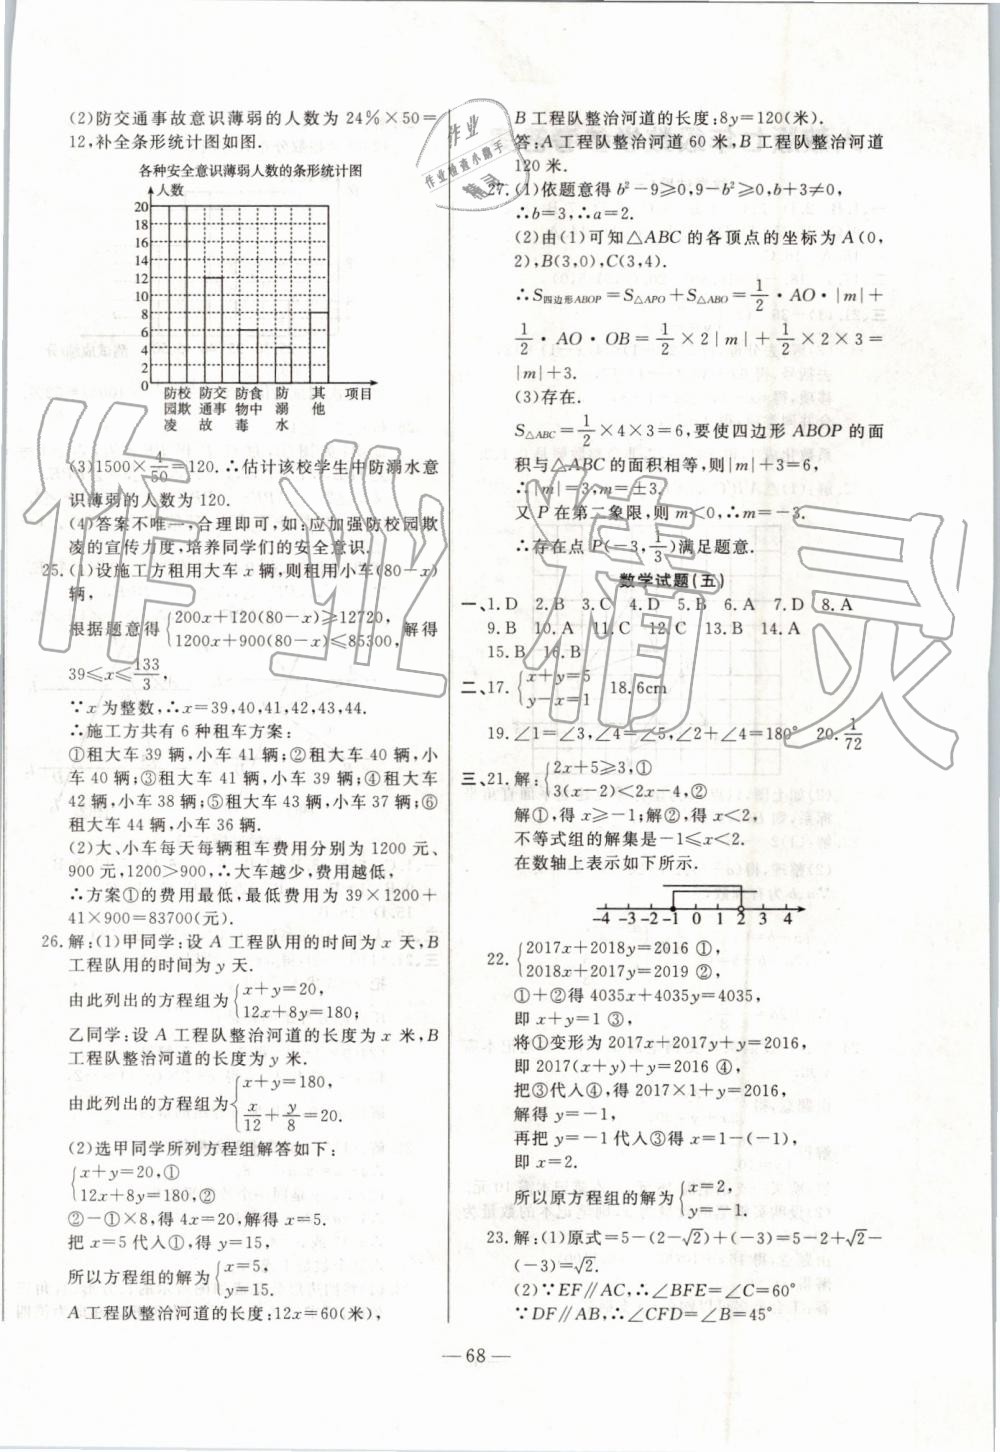 (2)防交通事故意识薄弱的人数为 24%×50=
12,补全条形统计图如图.
各种安全意识薄弱人数的条形统计图
人数
20
18
16
14
12
10
8
6
4
2
0
防校 防交 防食 防 其 项目
园欺 通事 物中 溺 他
凌 故 毒 水
(3)1500×4/50=120.∴估计该校学生中防溺水意
识薄弱的人数为 120.
(4)答案不唯一,合理即可,如:应加强防校园欺
凌的宣传力度,培养同学们的安全意识.
25.(1)设施工方租用大车 x 辆,则租用小车(80-x)
辆,
根据题意得{200x+120(80-x)≥12720,
1200x+900(80-x)≤85300, 解得
39≤x≤133/3,
∵x 为整数,∴x=39,40,41,42,43,44.
∴施工方共有 6 种租车方案:
①租大车 39 辆,小车 41 辆;②租大车 40 辆,小
车 40 辆;③租大车 41 辆,小车 39 辆;④租大车
42 辆,小车 38 辆;⑤租大车 43 辆,小车 37 辆;⑥
租大车 44 辆,小车 36 辆.
(2)大、小车每天每辆租车费用分别为 1200 元、
900 元,1200>900,∴大车越少,费用越低,
∴方案①的费用最低,最低费用为 39×1200+
41×900=83700(元).
26.解:(1)甲同学:设 A 工程队用的时间为 x 天,B
工程队用的时间为 y 天.
由此列出的方程组为{x+y=20,
12x+8y=180;
乙同学:设 A 工程队整治河道的长度为 x 米,B
工程队整治河道的长度为 y 米.
由此列出的方程组为{x+y=180,
x/12+y/8=20.
(2)选甲同学所列方程组解答如下:
{x+y=20,①
12x+8y=180,②
②-①×8,得 4x=20,解得 x=5.
把 x=5 代入①,得 y=15.
所以方程组的解为{x=5,
y=15.
A 工程队整治河道的长度:12x=60(米),
B 工程队整治河道的长度:8y=120(米).
答:A 工程队整治河道 60 米,B 工程队整治河道
120 米.
27.(1)依题意得 b²-9≥0,9-b²≥0,b+3≠0,
∴b=3,∴a=2.
(2)由(1)可知△ABC 的各顶点的坐标为 A(0,
2),B(3,0),C(3,4).
∴S四边形ABOP=S△APO+S△ABO=1/2·AO·|m|+
1/2·AO·OB=1/2×2|m|+1/2×2×3=
|m|+3.
(3)存在.
S△ABC=1/2×4×3=6,要使四边形 ABOP 的面
积与△ABC 的面积相等,则|m|+3=6,
∴|m|=3,m=±3.
又 P 在第二象限,则 m<0,∴m=-3.
∴存在点 P(-3,1/3)满足题意.
数学试题(五)
一、1.D 2.B 3.C 4.D 5.B 6.A 7.D 8.A
9.B 10.A 11.C 12.C 13.B 14.A
15.B 16.B
二、17.{x+y=5
y-x=1 18.6cm
19.∠1=∠3,∠4=∠5,∠2+∠4=180° 20.1/72
三、21.解:{2x+5≥3,①
3(x-2)<2x-4,②
解①,得x≥-1;解②,得 x<2,
不等式组的解集是-1≤x<2.
在数轴上表示如下所示.
-4 -3 -2 -1 0 1 2 3 4
22.{2017x+2018y=2016 ①,
2018x+2017y=2019 ②,
①+②得 4035x+4035y=4035,
即 x+y=1 ③,
将①变形为 2017x+2017y+y=2016,
即 2017(x+y)+y=2016 ④,
把③代入④,得 2017×1+y=2016,
解得 y=-1,
再把 y=-1 代入③得 x=1-(-1),
即 x=2.
所以原方程组的解为{x=2,
y=-1.
23.解:(1)原式=5-(2-√2)+(-3)=5-2+√2-
(-3)=√2.
(2)∵EF∥AC,∴∠BFE=∠C=60°
∵DF∥AB,∴∠CFD=∠B=45°
— 68 —
作业
作业检查小助手
精灵
作业精灵